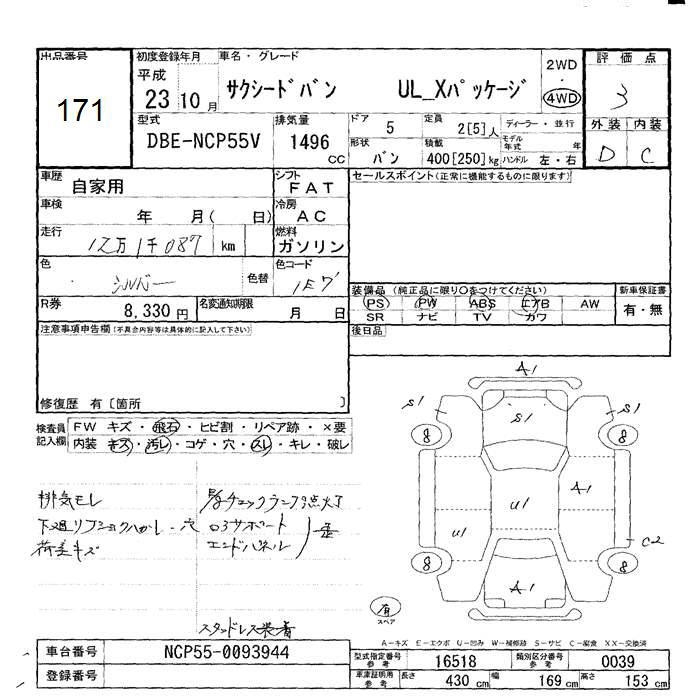 出品番号
171
初度登録年月
平成
23 10 月
車名・グレード
サクシードバン UL_Xパッケージ
2WD
・
4WD
評価点
3
外装 内装
D C
型式
DBE-NCP55V
排気量
1496
CC
ドア
5
定員
2[5]人
ディーラー・並行
モデル年式 年
形状
バン
積載
400[250]kg
ハンドル 左・右
車歴
自家用
シフト
FAT
セールスポイント(正常に機能するものに限ります)
車検
年 月( 日)
冷房
AC
走行
12万1千087 km
燃料
ガソリン
色
シルバー
色替
色コード
1E7
装備品 (純正品に限り○をつけてください)
PS PW ABS エアB AW
SR ナビ TV カワ
新車保証書
有・無
R券
8,330 円
名変通知期限
月 日
後日品
注意事項申告欄(不具合内容等は具体的に記入して下さい)
修復歴 有〔箇所 〕
検査員記入欄
FW キズ・飛石・ヒビ割・リペア跡・×要
内装 キズ・汚レ・コゲ・穴・スレ・キレ・破レ
排気モレ
荷台キズ
エンドパネル
スタッドレス装着
A1
S1 S1 S1
8 8
A1
U1
U1
C2
8 8
A1
有
スペア
A-キズ E-エクボ U-凹み W-補修跡 S-サビ C-腐食 XX-交換済
車台番号
NCP55-0093944
登録番号
型式指定番号
参考
16518
類別区分番号
参考
0039
車庫証明用
参考
長さ 430 cm
幅 169 cm
高さ 153 cm